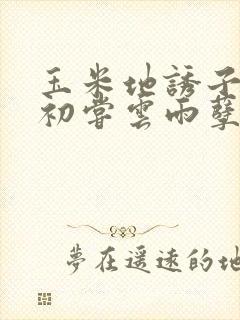 玉米地誘子
初嘗雲雨孽
夢在遥遠的地